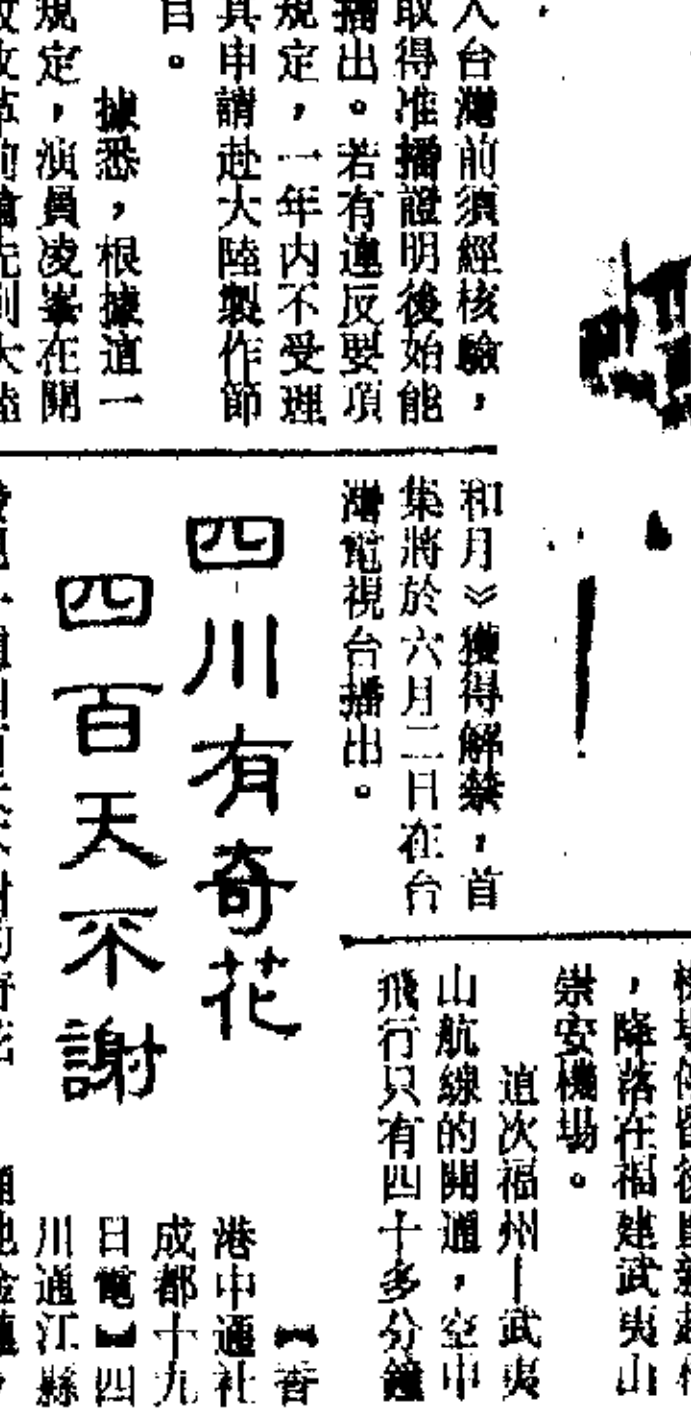 入台灣前須經核驗，
取得准播證明後始能
播出。若有違反要項
規定，一年內不受理
其申請赴大陸製作節
目。
據悉，根據這一
規定，演員凌峯在開
和月》獲得解禁，首
集將於六月二日在台
灣電視台播出。
四川有奇花
四百天不謝
，降落在福建武夷山
崇安機場。
這次福州—武夷
山航線的開通，空中
飛行只有四十多分鐘
【香
港中通社
成都十九
日電】四
川通江縣